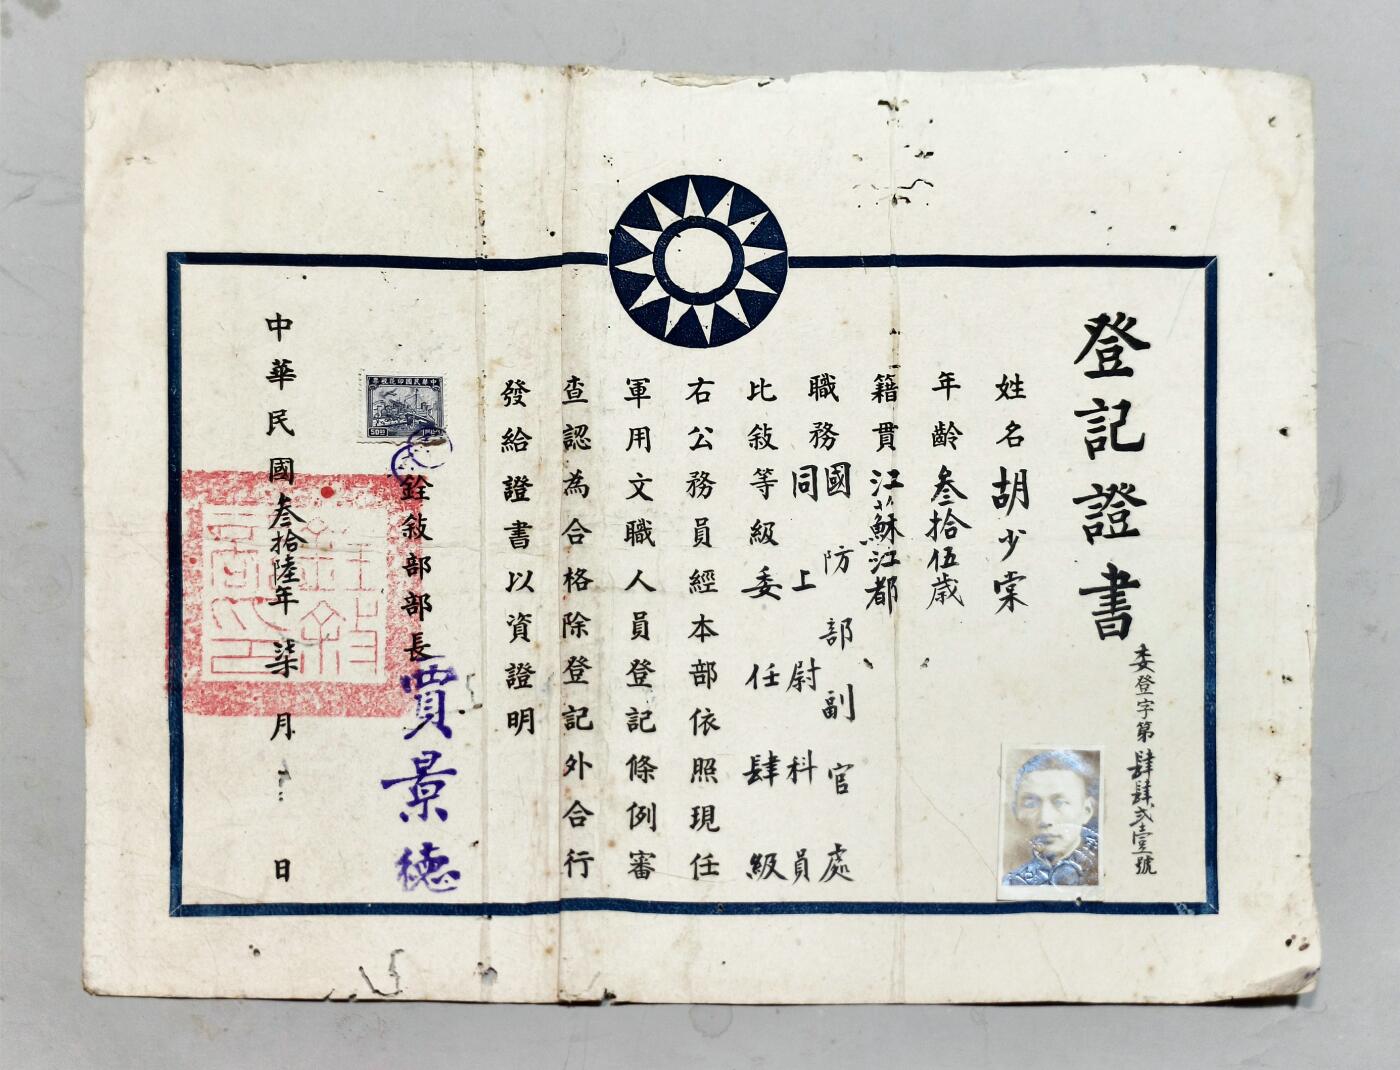 登記證書
委登字第肆肆弍壹號
姓名胡少棠
年齡叁拾伍歲
籍貫江蘇江都
職務國防部副官處
同上尉科員
比敍等級委任肆級
右公務員經本部依照現任
軍用文職人員登記條例審
查認為合格除登記外合行
發給證書以資證明
中華民國印花稅票
50
銓敍部部長賈景德
中華民國叁拾陸年柒月 日